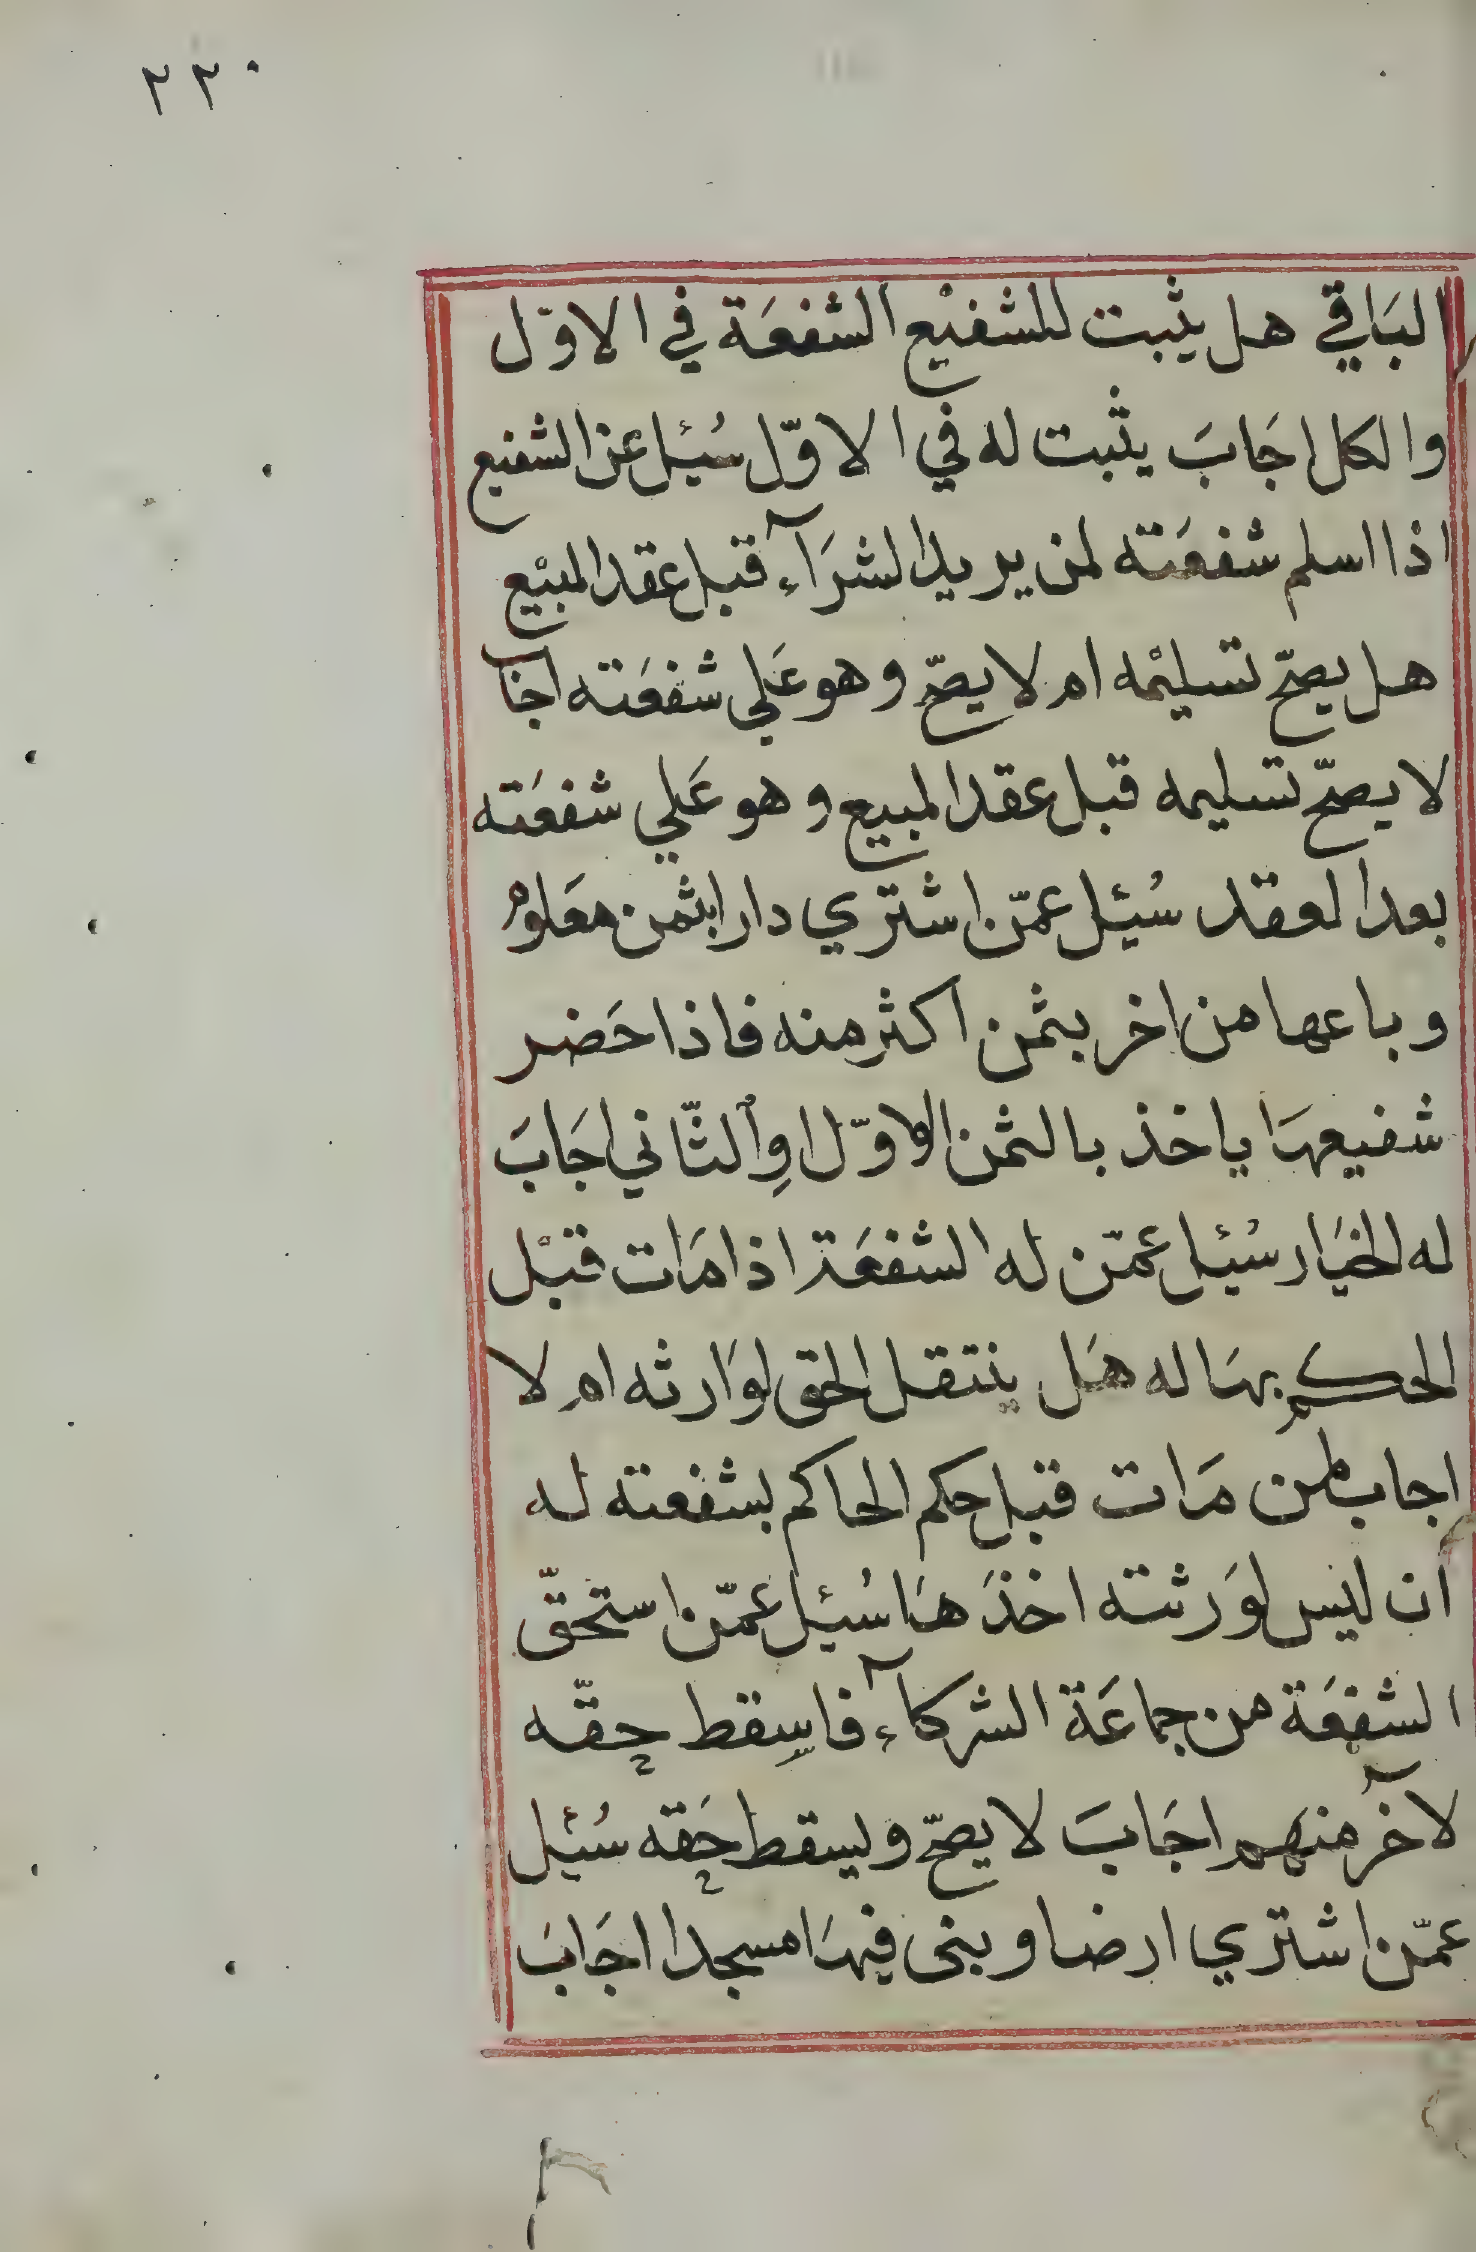 ٢٢٠
الباقي هل يثبت للشفيع الشفعة في الاوّل
والكل اجاب يثبت له في الاوّل سُئل عن الشفيع
اذا اسلم شفعته لمن يريد الشرآء قبل عقد المبيع
هل يصحّ تسليمه ام لا يصحّ وهو علي شفعته اجاب
لا يصحّ تسليمه قبل عقد المبيع وهو علي شفعته
بعد العقد سُئل عمّن اشتري دارا بثمن معلوم
وباعها من اخر بثمن اكثر منه فاذا حضر
شفيعها ياخذ بالثمن الاوّل اوِ الثّاني اجاب
له الخيار سُئل عمّن له الشفعة اذا مات قبل
الحكم بها له هل ينتقل الحق لوارثه ام لا
اجاب من مات قبل حكم الحاكم بشفعته له
ان ليس لورثته اخذها سُئل عمّن استحقّ
الشفعة من جماعة الشركآء فاسقط حقّه
لآخر منهم اجاب لا يصحّ ويسقط حقه سُئل
عمّن اشتري ارضا وبنى فيها مسجدا اجاب